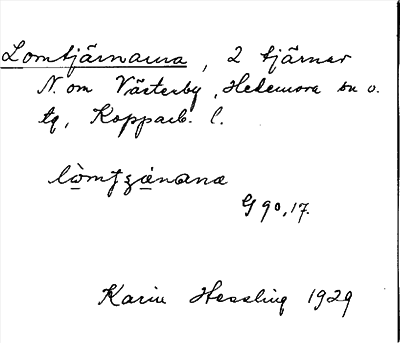 Lomtjärnarna, 2 tjärnar
N. om Västerby, Hedemora sn o.
tg, Kopparb. l.
G 90, 17.
Karin Hessling 1929